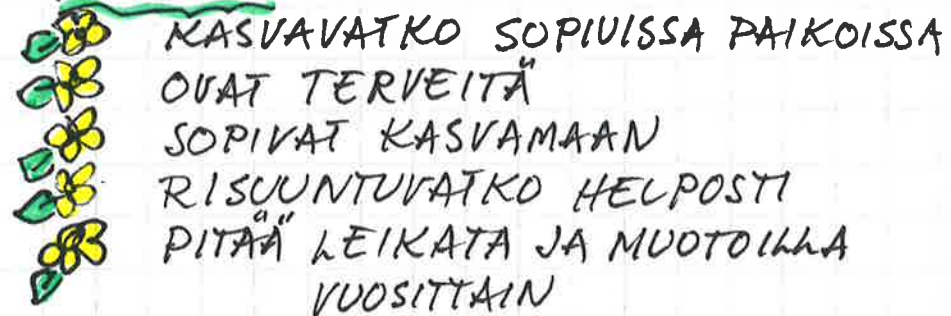 KASVAVATKO SOPIVISSA PAIKOISSA
OVAT TERVEITÄ
SOPIVAT KASVAMAAN
RISUUNTUVATKO HELPOSTI
PITÄÄ LEIKATA JA MUOTOILLA
VUOSITTAIN